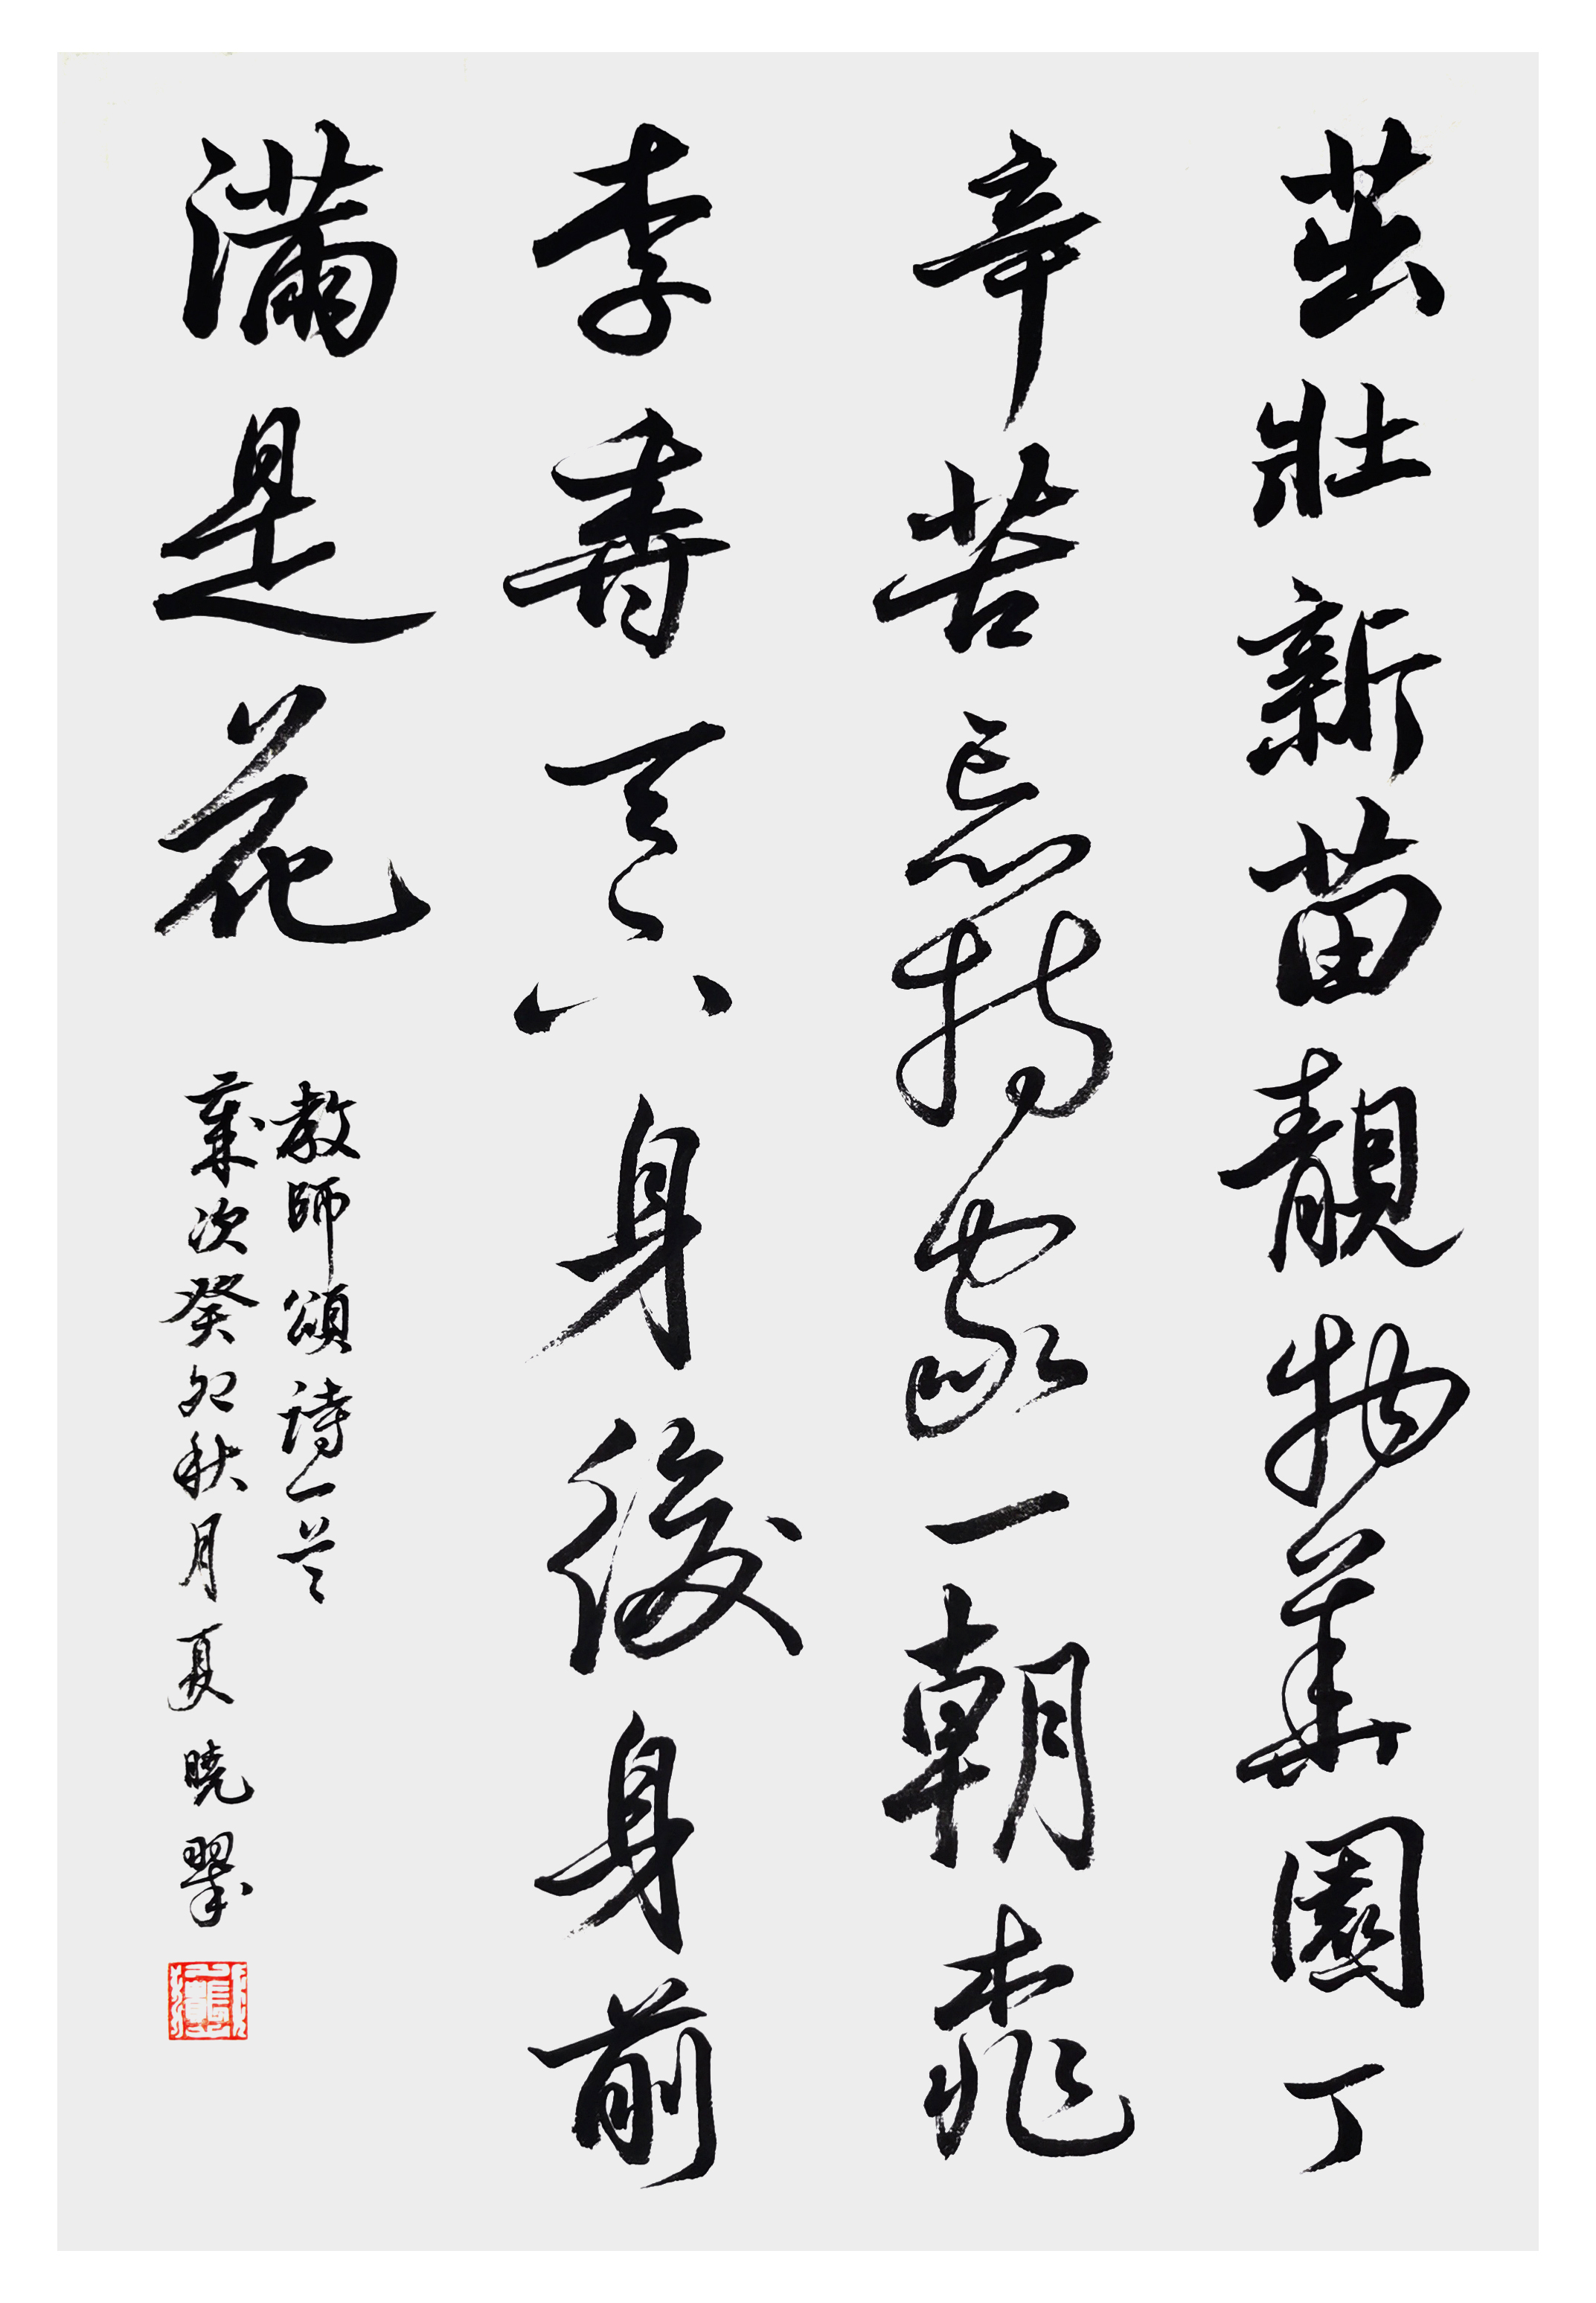 茁壯新苗靚物華園丁
辛苦忘持家一朝桃
李天身後身前
滿是花
教師頌詩一首
歲次癸卯秋月夏曉